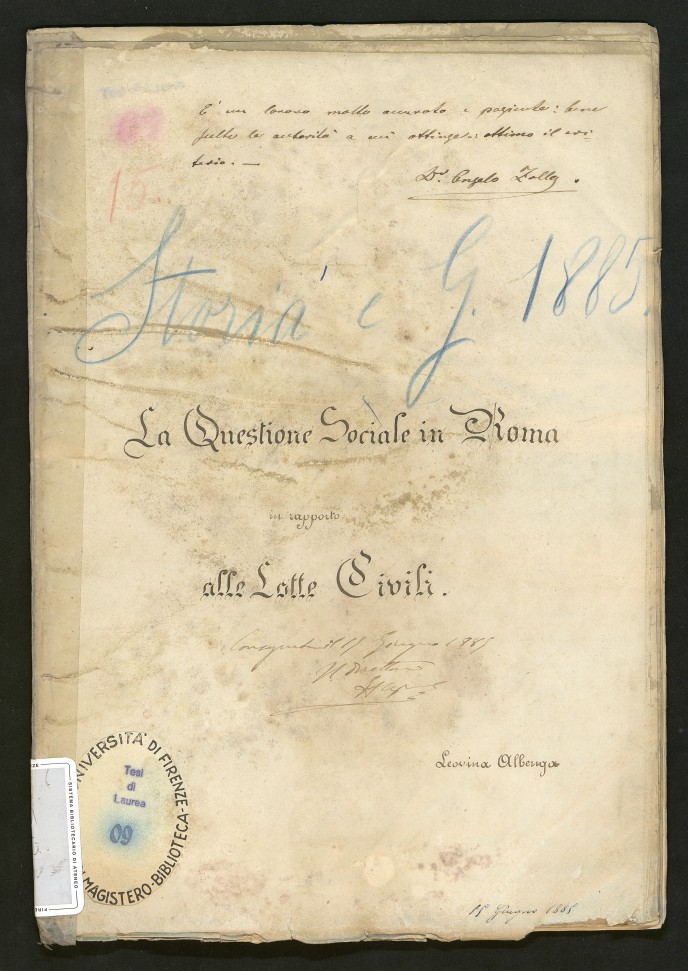 Tesi di Laurea
È un lavoro molto accurato e paziente: bene
scelte le autorità a cui attinge: ottimo il cri
terio. —
Dr. Angelo Zolla.
15
Storia e G. 1885.
La Questione Sociale in Roma
in rapporto
alle Lotte Civili.
Consegnata il 15 Giugno 1885
Il Direttore
Leovina Albenga
UNIVERSITA' DI FIRENZE-BIBLIOTECA-MAGISTERO
Tesi
di
Laurea
09
SISTEMA BIBLIOTECARIO DI ATENEO
15 Giugno 1885